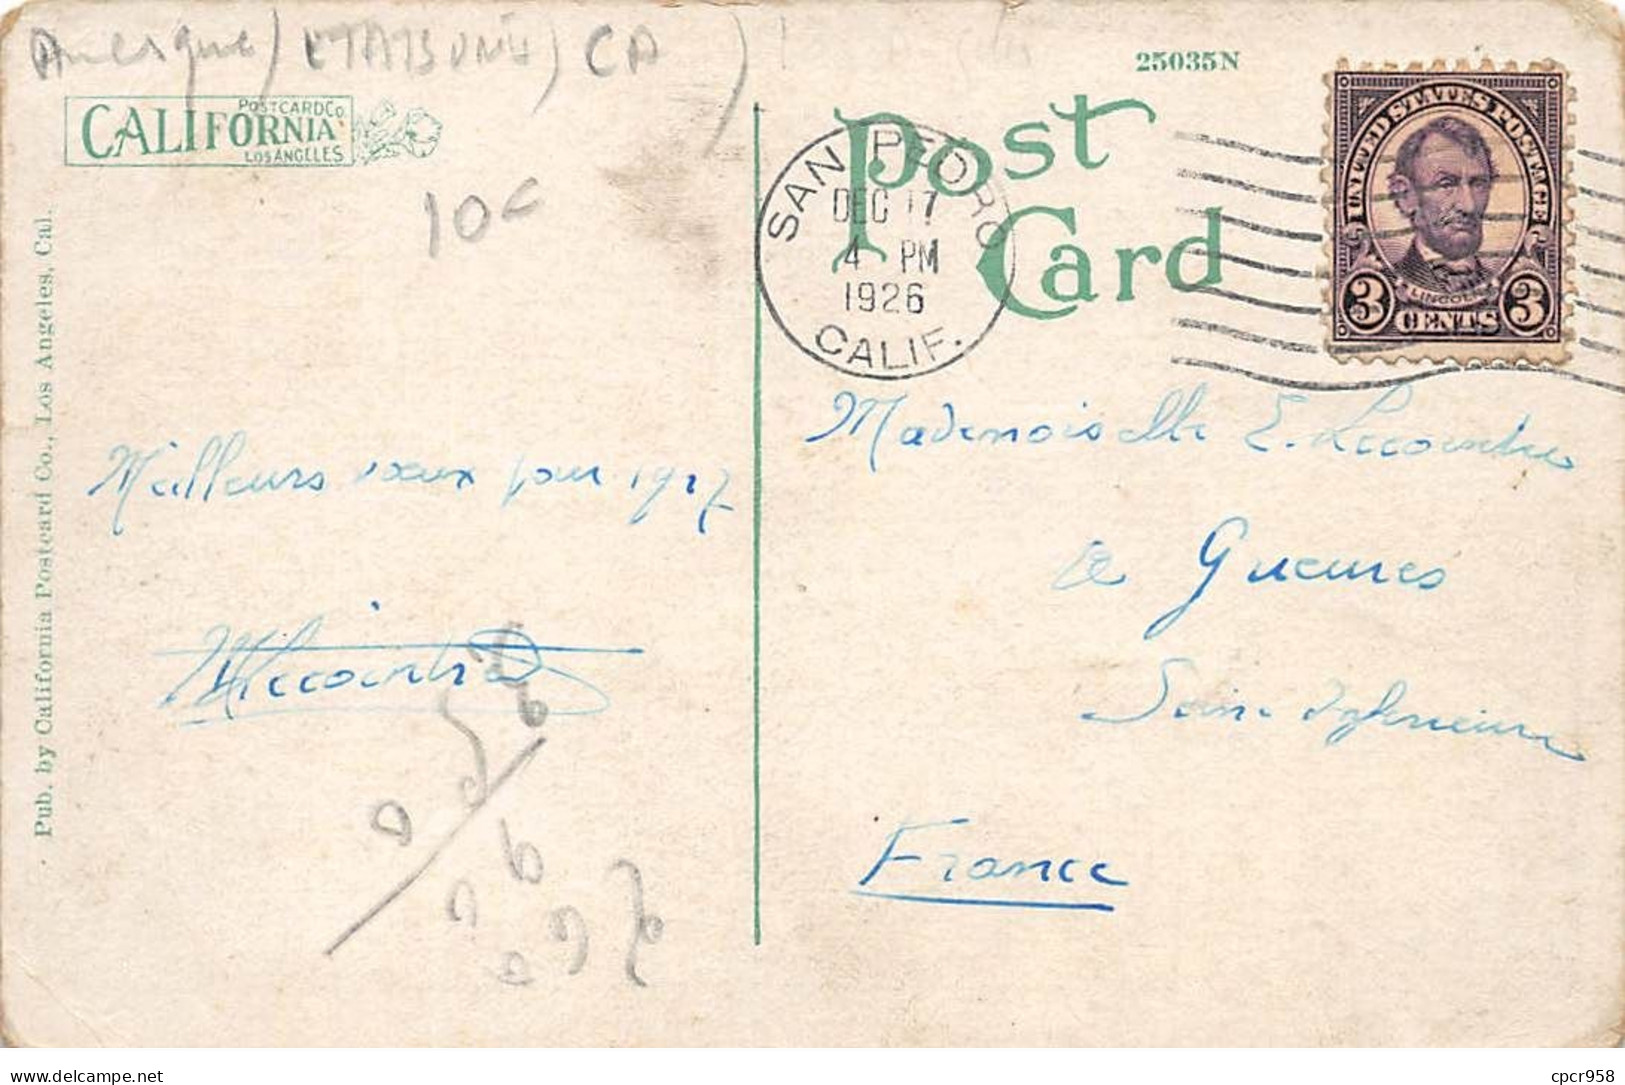 Amerique) ETATSUNIS) CA)
25035N
POSTCARD Co
CALIFORNIA
LOS ANGELES
10c
Pub. by California Postcard Co., Los Angeles, Cal.
Post
Card
SAN PEDRO
DEC 17
4 PM
1926
CALIF.
UNITED STATES POSTAGE
LINCOLN
3 CENTS 3
Meilleurs vœux pour 1927
MLecointre
Mademoiselle E. Lecointre
à Gueures
Seine Inférieure
France
delcampe.net
cpcr958